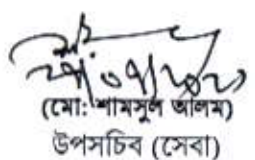 (মো: শামসুল আলম)
উপসচিব (সেবা)